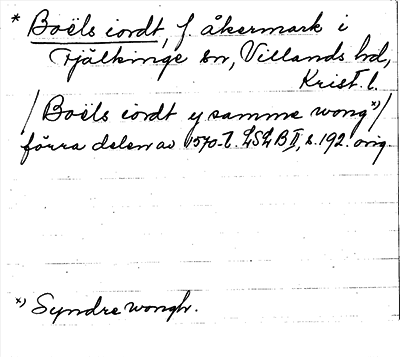 * Boëls iordt, f. åkermark i
Fjälkinge sn, Villands hd,
Krist. l.
/ Boëls iordt y samme wong x) /
förra delen av 1570-t. LSLB II, s. 192. orig.
x) Syndre wongh.